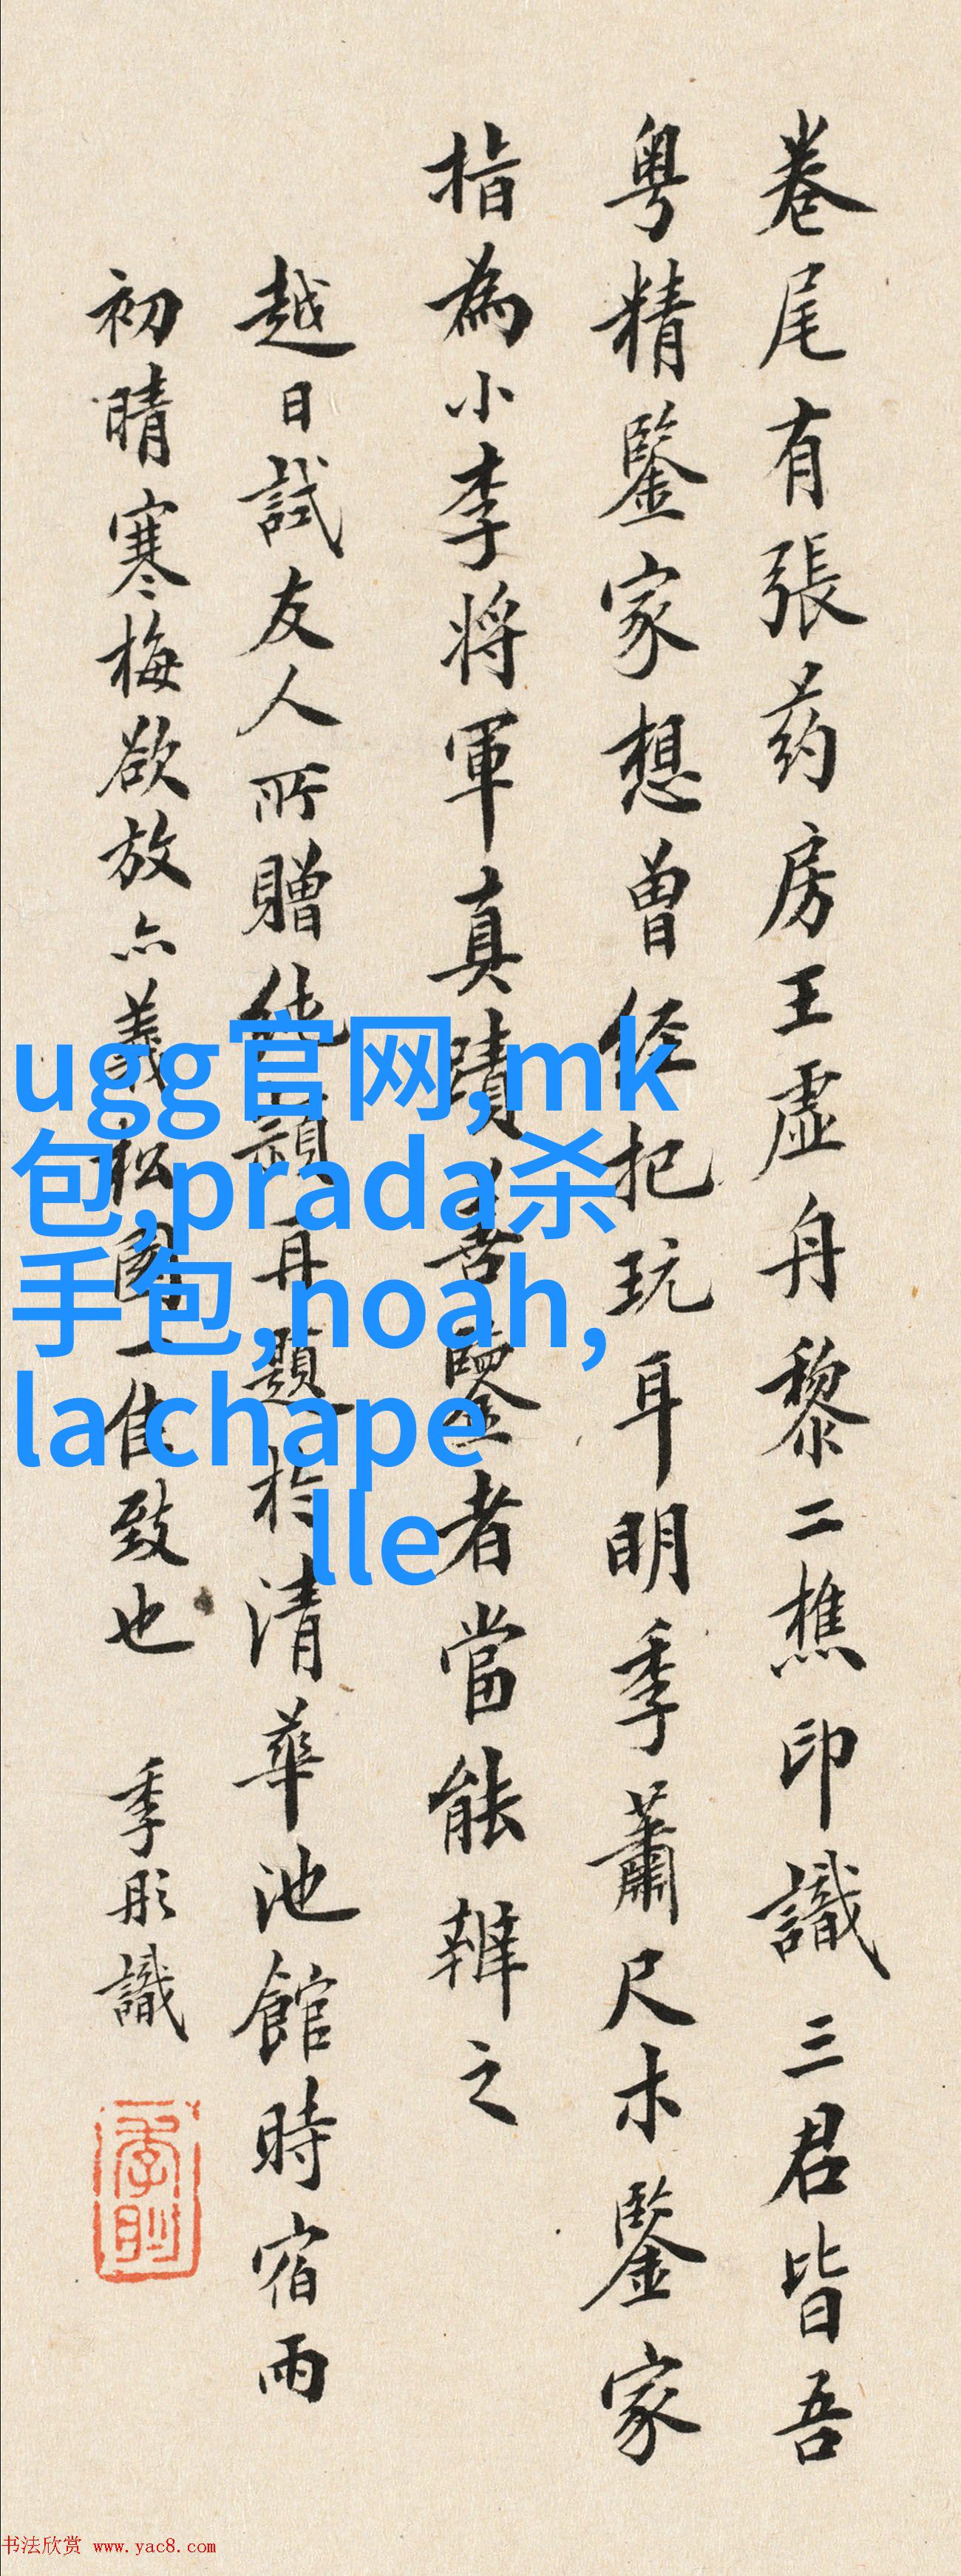 卷尾有張药房王虛舟黎二樵印識三君皆吾
粤精鑒家想曾經把玩耳明季蕭尺木鑒家
指為小李将軍真蹟善鑒者當能辨之
越日試友人所贈純穎再題於清華池館時宿雨
初晴寒梅欲放亦義松園一佳致也
季彤識
ugg官网,mk
包,prada杀
手包,noah,
la chape
lle
书法欣赏 www.yac8.com